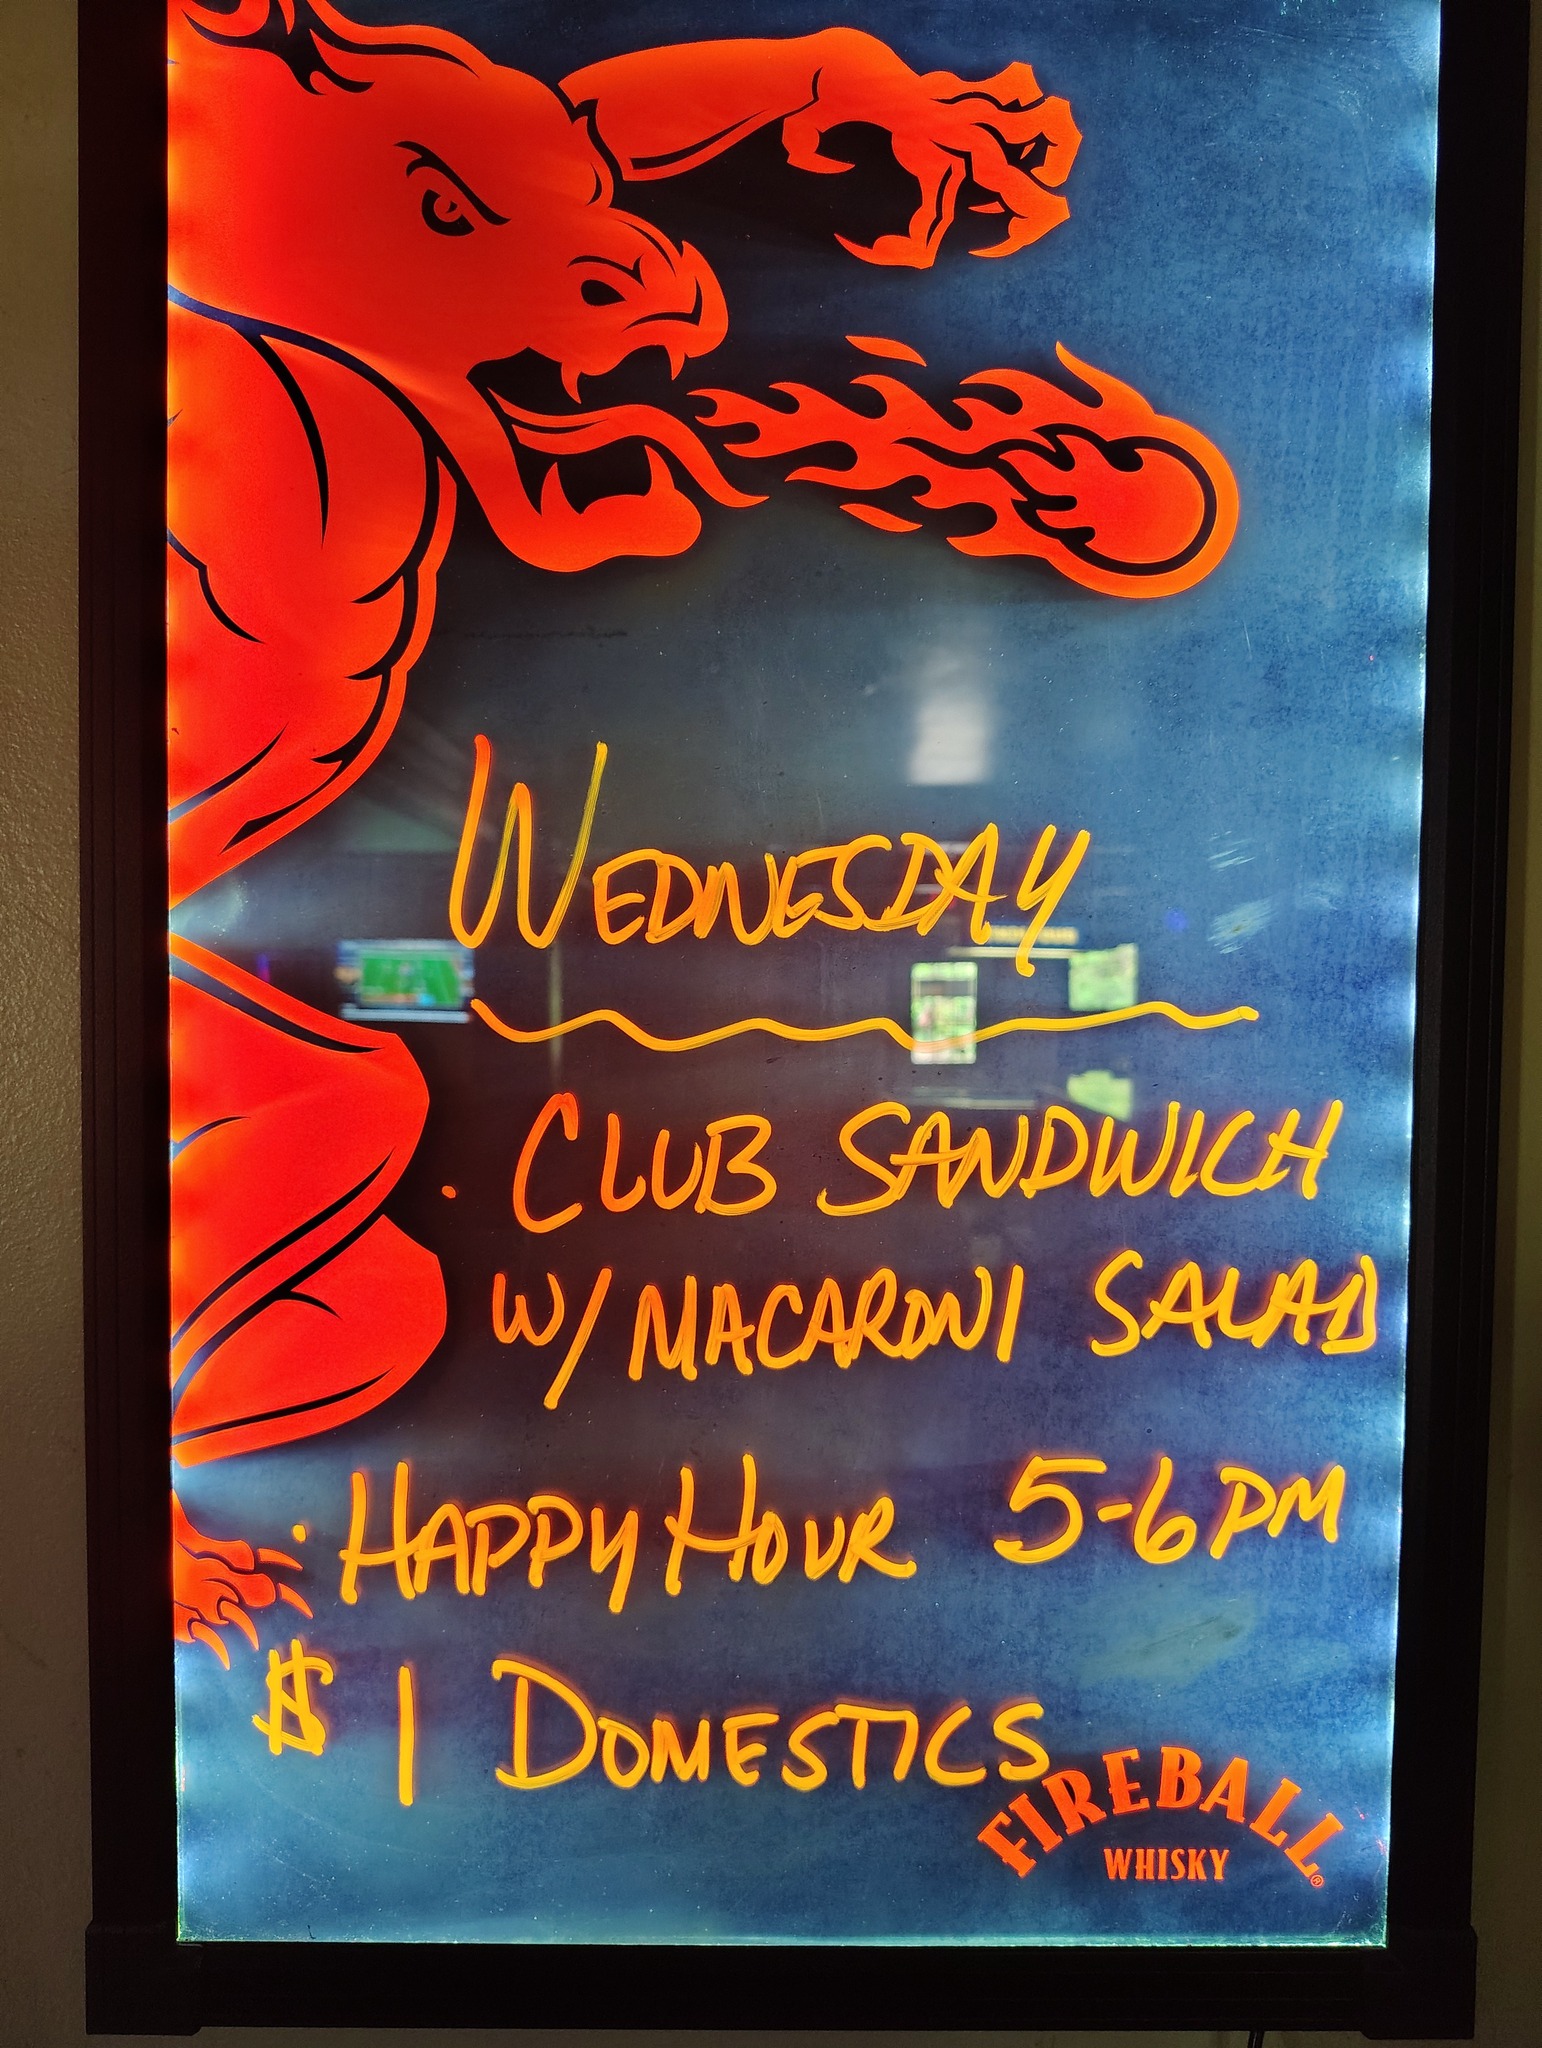 WEDNESDAY
· CLUB SANDWICH
W/ MACARONI SALAD
· HAPPY HOUR 5-6PM
$1 DOMESTICS
FIREBALL®
WHISKY